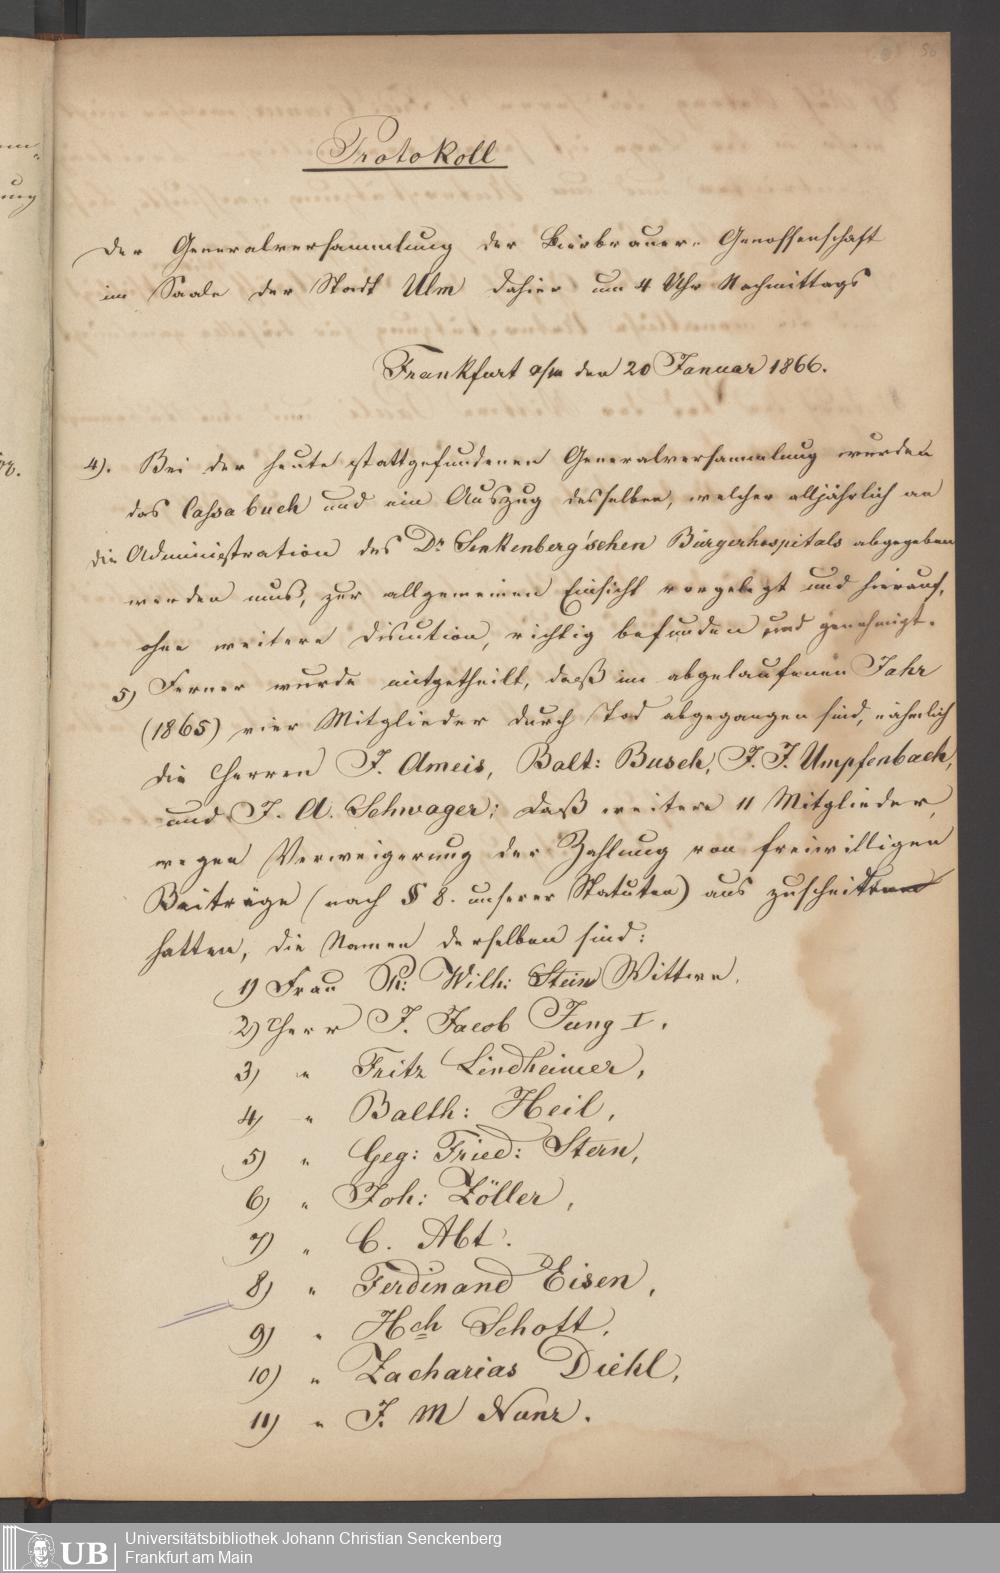 Protokoll
der Generalversammlung der Bierbrauer-Genossenschaft
im Saale der Stadt Ulm dahier um 4 Uhr Nachmittags
Frankfurt a/m den 20 Januar 1866.
4). Bei der heute stattgefundenen Generalversammlung wurden
das Cassabuch und ein Auszug desselben, welcher alljährlich an
die Administration des Dr. Senkenberg'schen Bürgerhospitals abgegeben
werden mus, zur allgemeinen Einsicht vorgelegt und hierauf,
ohne weitere Discution, richtig befunden und genehmigt.
5) Ferner wurde mitgetheilt, daß im abgelaufenen Jahr
(1865) vier Mitglieder durch Tod abgegangen sind, nähmlich
die Herren J. Ameis, Balt: Busch, J. J. Umpfenbach,
und J. A. Schwager; daß weitere 11 Mitglieder,
wegen Verweigerung der Zahlung von freiwilligen
Beiträge (nach § 8. unserer Statuten) aus zuscheiden
hatten, die Namen derselben sind:
1) Frau Ph: Wilh: Stein Wittwe.
2) Herr J. Jacob Jung I.
3) " Fritz Lindheimer,
4) " Balth: Heil,
5) " Geg: Fried: Stern,
6) " Joh: Zöller,
7) " C. Abt.
8) " Ferdinand Eisen,
9) " Hch Schott.
10) " Zacharias Diehl,
11) " J. M Nunz.
UB
Universitätsbibliothek Johann Christian Senckenberg
Frankfurt am Main